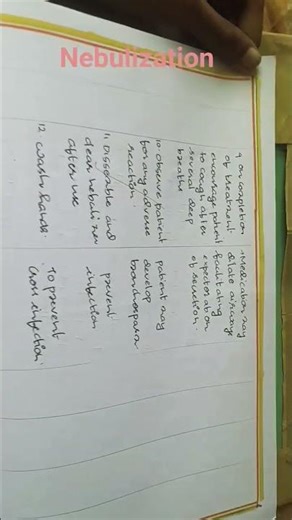 Nebulization
9. On completion
of treatment
encourage patient
to cough after
several deep
breaths
-Medication may
dilate airways
facilitating
expectoration
of secretion.
10. Observe patient
for any adverse
reaction.
patient may
develop
11. Dissemble and
clean nebulizer
after use
prevent
infection
12. Wash hands.
To prevent
Cross infection.